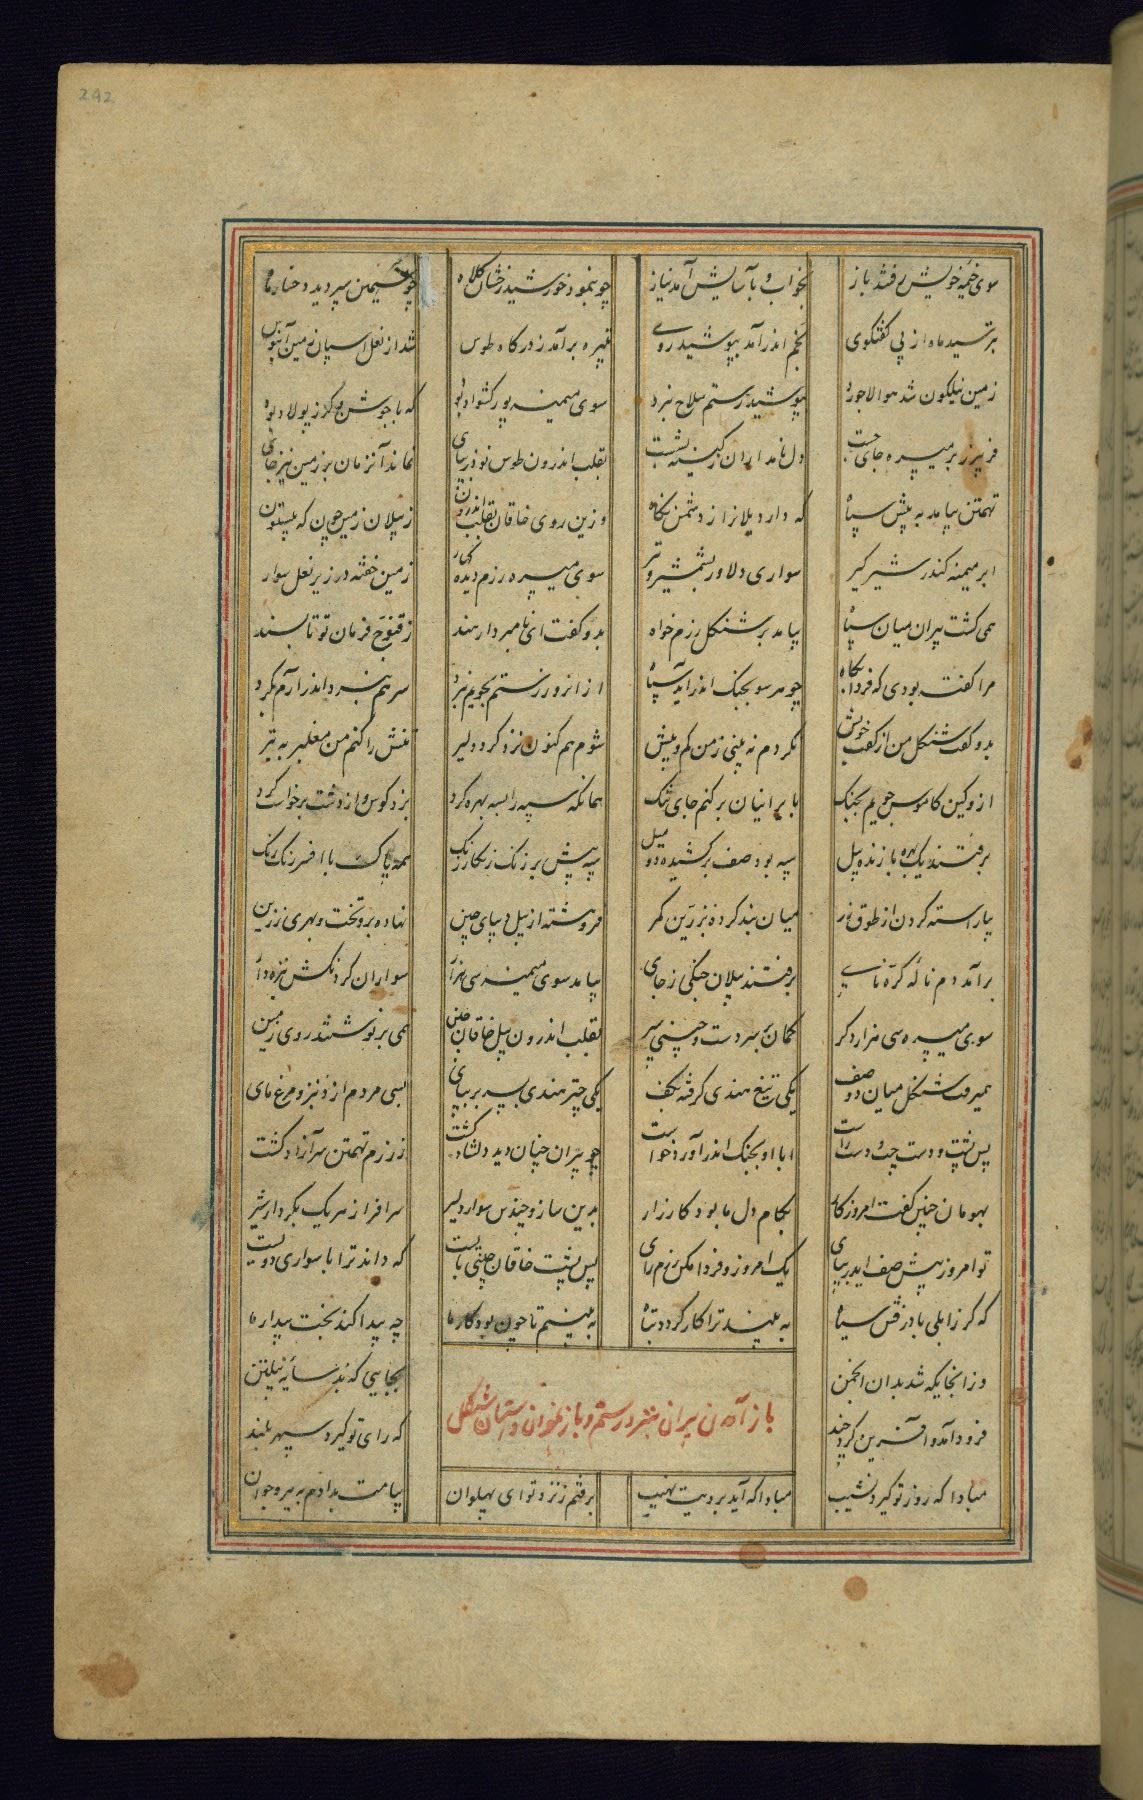 242
سوی خیمه خویش رفتند باز بخواب و بآسایش آمد نیاز چو بنمود خورشید رخشان کلاه چو سیمین سپر دید رخسار ماه
بترسید ماه از پی گفتگوی بخم اندر آمد بپوشید روی تبیره برآمد ز درگاه طوس شد از نعل اسپان زمین آبنوس
زمین نیلگون شد هوا لاجورد بپوشید رستم سلاح نبرد سوی میمنه پور کشواد بود که با جوشن و گرز پولاد بود
فریبرز بر میسره جای جست دل نامداران ز کینه بشست بقلب اندرون طوس نوذر بپای نماند آنزمان بر زمین نیز جای
تهمتن بیامد به پیش سپاه که دارد یلانرا ز دشمن نگاه وزین روی خاقان بقلب اندرون ز پیلان زمین چون که بیستون
ابر میمنه کندر شیر گیر سواری دلاور بشمشیر و تیر سوی میسره رزم دیده گهار زمین خفته در زیر نعل سوار
همی گشت پیران میان سپاه بیامد بر شنگل رزم خواه بدو گفت ای نامبردار هند ز قنوج فرمان تو تا بسند
مرا گفته بودی که فردا پگاه چو هر سو بجنگ اندر آید سپاه از آنرو ز رستم بجویم نبرد سرهم نبرد اندر آرم بگرد
بدو گفت شنگل من از گفت خویش نگردم نه بینی ز من کم و بیش شوم هم کنون نزد گرد دلیر تنش را کنم من مغلبر به تیر
ازو کین کاموس جویم بجنگ با برانیان بر کنم جای تنگ همانگه سپه را بسه بهره کرد بزد کوس و از دشت برخاست گرد
برفتند یک بهره با زنده پیل سپه بود صف برکشیده دو میل سپه پیش پر زنگ زنگار رنگ همه پاک با افسر رنگ رنگ
بیاراسته گردن از طوق زر میان بند کرده بزرین کمر فروهشته از پیل دیبای چین نهاده برو تخت و مهری زرین
برآمد دم ناله کره نای برفتند پیلان جنگی ز جای بیامد سوی میمنه سی هزار سواران گردنکش نیزه دار
سوی میسره سی هزار دگر کمان بر سر دست و چینی سپر بقلب اندرون پیل خاقان چین همی برنوشتند روی زمین
همیرفت شنگل میان دو صف یکی تیغ هندی گرفته بکف یکی چتر هندی بسر بر بپای بسی مردم از دنبر و مرغ و مای
پس پشت و دست چپ و دست راست ابا او بجنگ اندر آورد خواست چو پیران چنان دید دلشاد گشت ز رزم تهمتن سر آزاد گشت
بهومان چنین گفت امروز کار بکام دل ما بود کارزار بدین ساز و چندین سوار دلیر سرافراز هر یک بکردار شیر
تو امروز پیش صف ایدر بپای یک امروز و فردا مکن رزم رای پس پشت خاقان چینی بایست که داند ترا با سواری دویست
که گر زابلی با درفش سیاه به بیند ترا کار گردد تباه به بینیم تا چون بود کار ما چه پیدا کند بخت بیدار ما
وزانجایگه شد بدان انجمن بجایی که بد سایه پیلتن
باز آمدن پیران بنزد رستم و باز نمودن داستان شنگل
فرود آمد و آفرین کرد چند که رای تو گیرد سپهر بلند
مبادا که روز تو گیرد نشیب مبادا که آید برویت نهیب برفتم ز نزد تو ای پهلوان پیامت بدادم به پیر و جوان